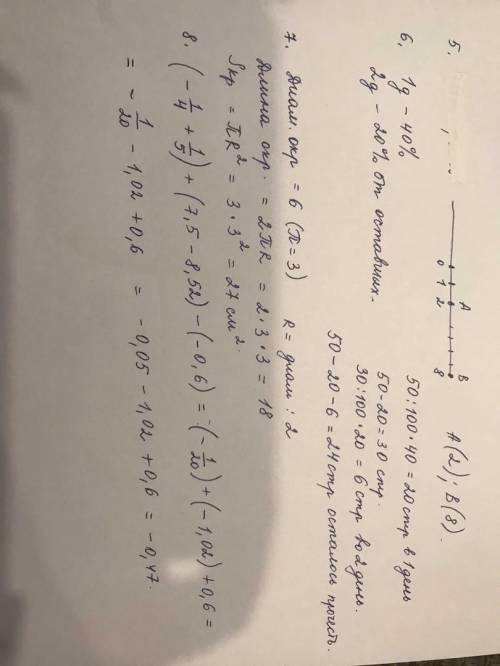 5. A B A(2); B(8).
0 1 2 8
6. 1д - 40% 50:100·40=20стр в 1день
2д - 20% от оставших. 50-20=30 стр.
30:100·20=6стр во 2 день.
50-20-6=24стр осталось прочесть.
7. Диам. окр = 6 (π=3) R = диам : 2
Длина окр. = 2πR = 2·3·3 = 18
Sкр = πR² = 3·3² = 27 см².
8. (-1/4 + 1/5) + (7,5 - 8,52) - (-0,6) = (-1/20) + (-1,02) + 0,6 =
= - 1/20 - 1,02 + 0,6 = -0,05 - 1,02 + 0,6 = -0,47.